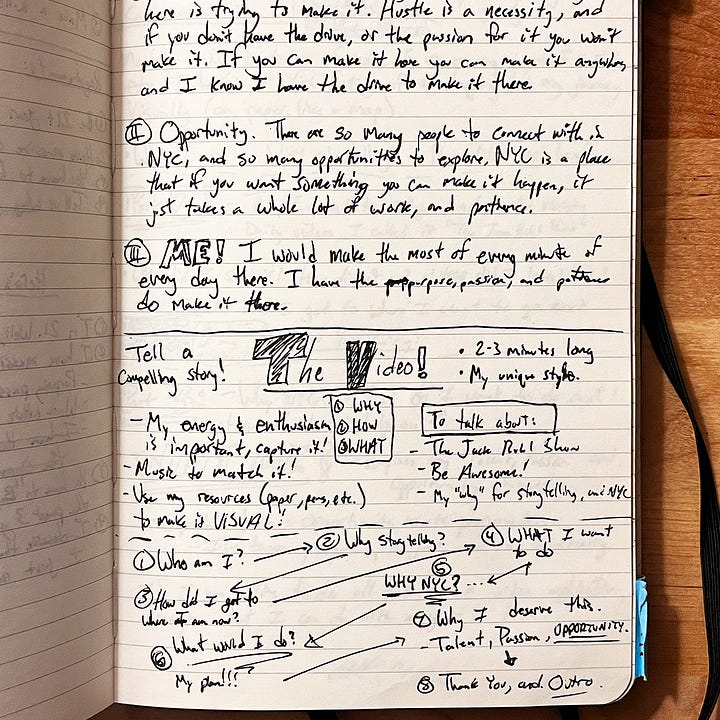 here is trying to make it. Hustle is a necessity, and
if you don't have the drive, or the passion for it you won't
make it. If you can make it here you can make it anywhere,
and I know I have the drive to make it there.
II Opportunity. There are so many people to connect with in
NYC, and so many opportunities to explore. NYC is a place
that if you want something you can make it happen, it
just takes a whole lot of work, and
III ME! I would make the most of every minute of
every day there. I have the purpose, passion, and
do make it there.
Tell a
Compelling story!
The Video!
• 2-3 minutes long
• My unique style.
- My energy & enthusiasm
is important, capture it!
- Music to match it!
- Use my resources (paper, pens, etc.)
to make it VISUAL!
① WHY
② HOW
③ WHAT
To talk about:
- The Jack Show
- Be Awesome!
- My "why" for storytelling, and NYC
① Who am I?
② Why storytelling?
③ How did I get to
where I am now?
④ WHAT I want
to do
⑤
WHY NYC? ...
⑥ What would I do?
My plan!!!
⑦ Why I deserve this.
- Talent, Passion, OPPORTUNITY.
⑧ Thank You, and Outro.